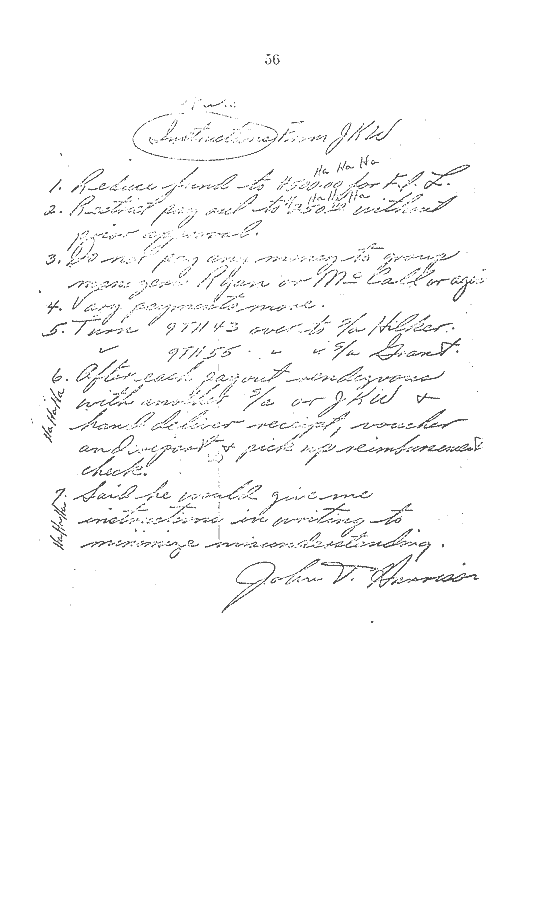 56
Instructions From JKW
Ha Ha Ha
1. Reduce fund to $500.00 for F.J.L.
Ha Ha Ha
2. Restrict pay out to $250.00 without
prior approval.
3. Do not pay any money to group
managers Ryan or McCall or
4. Vary payments more.
5. Turn 9TH43 over to S/a Hilker.
" 9TH55 " " " S/a Grant.
6. After each payout rendezvous
with another S/a or JKW &
Ha Ha Ha
hand deliver receipt, voucher
and report & pick up reimbursement
check.
7. Said he would give me
instructions in writing to
Ha Ha Ha
minimize misunderstanding.
John T. Harrison